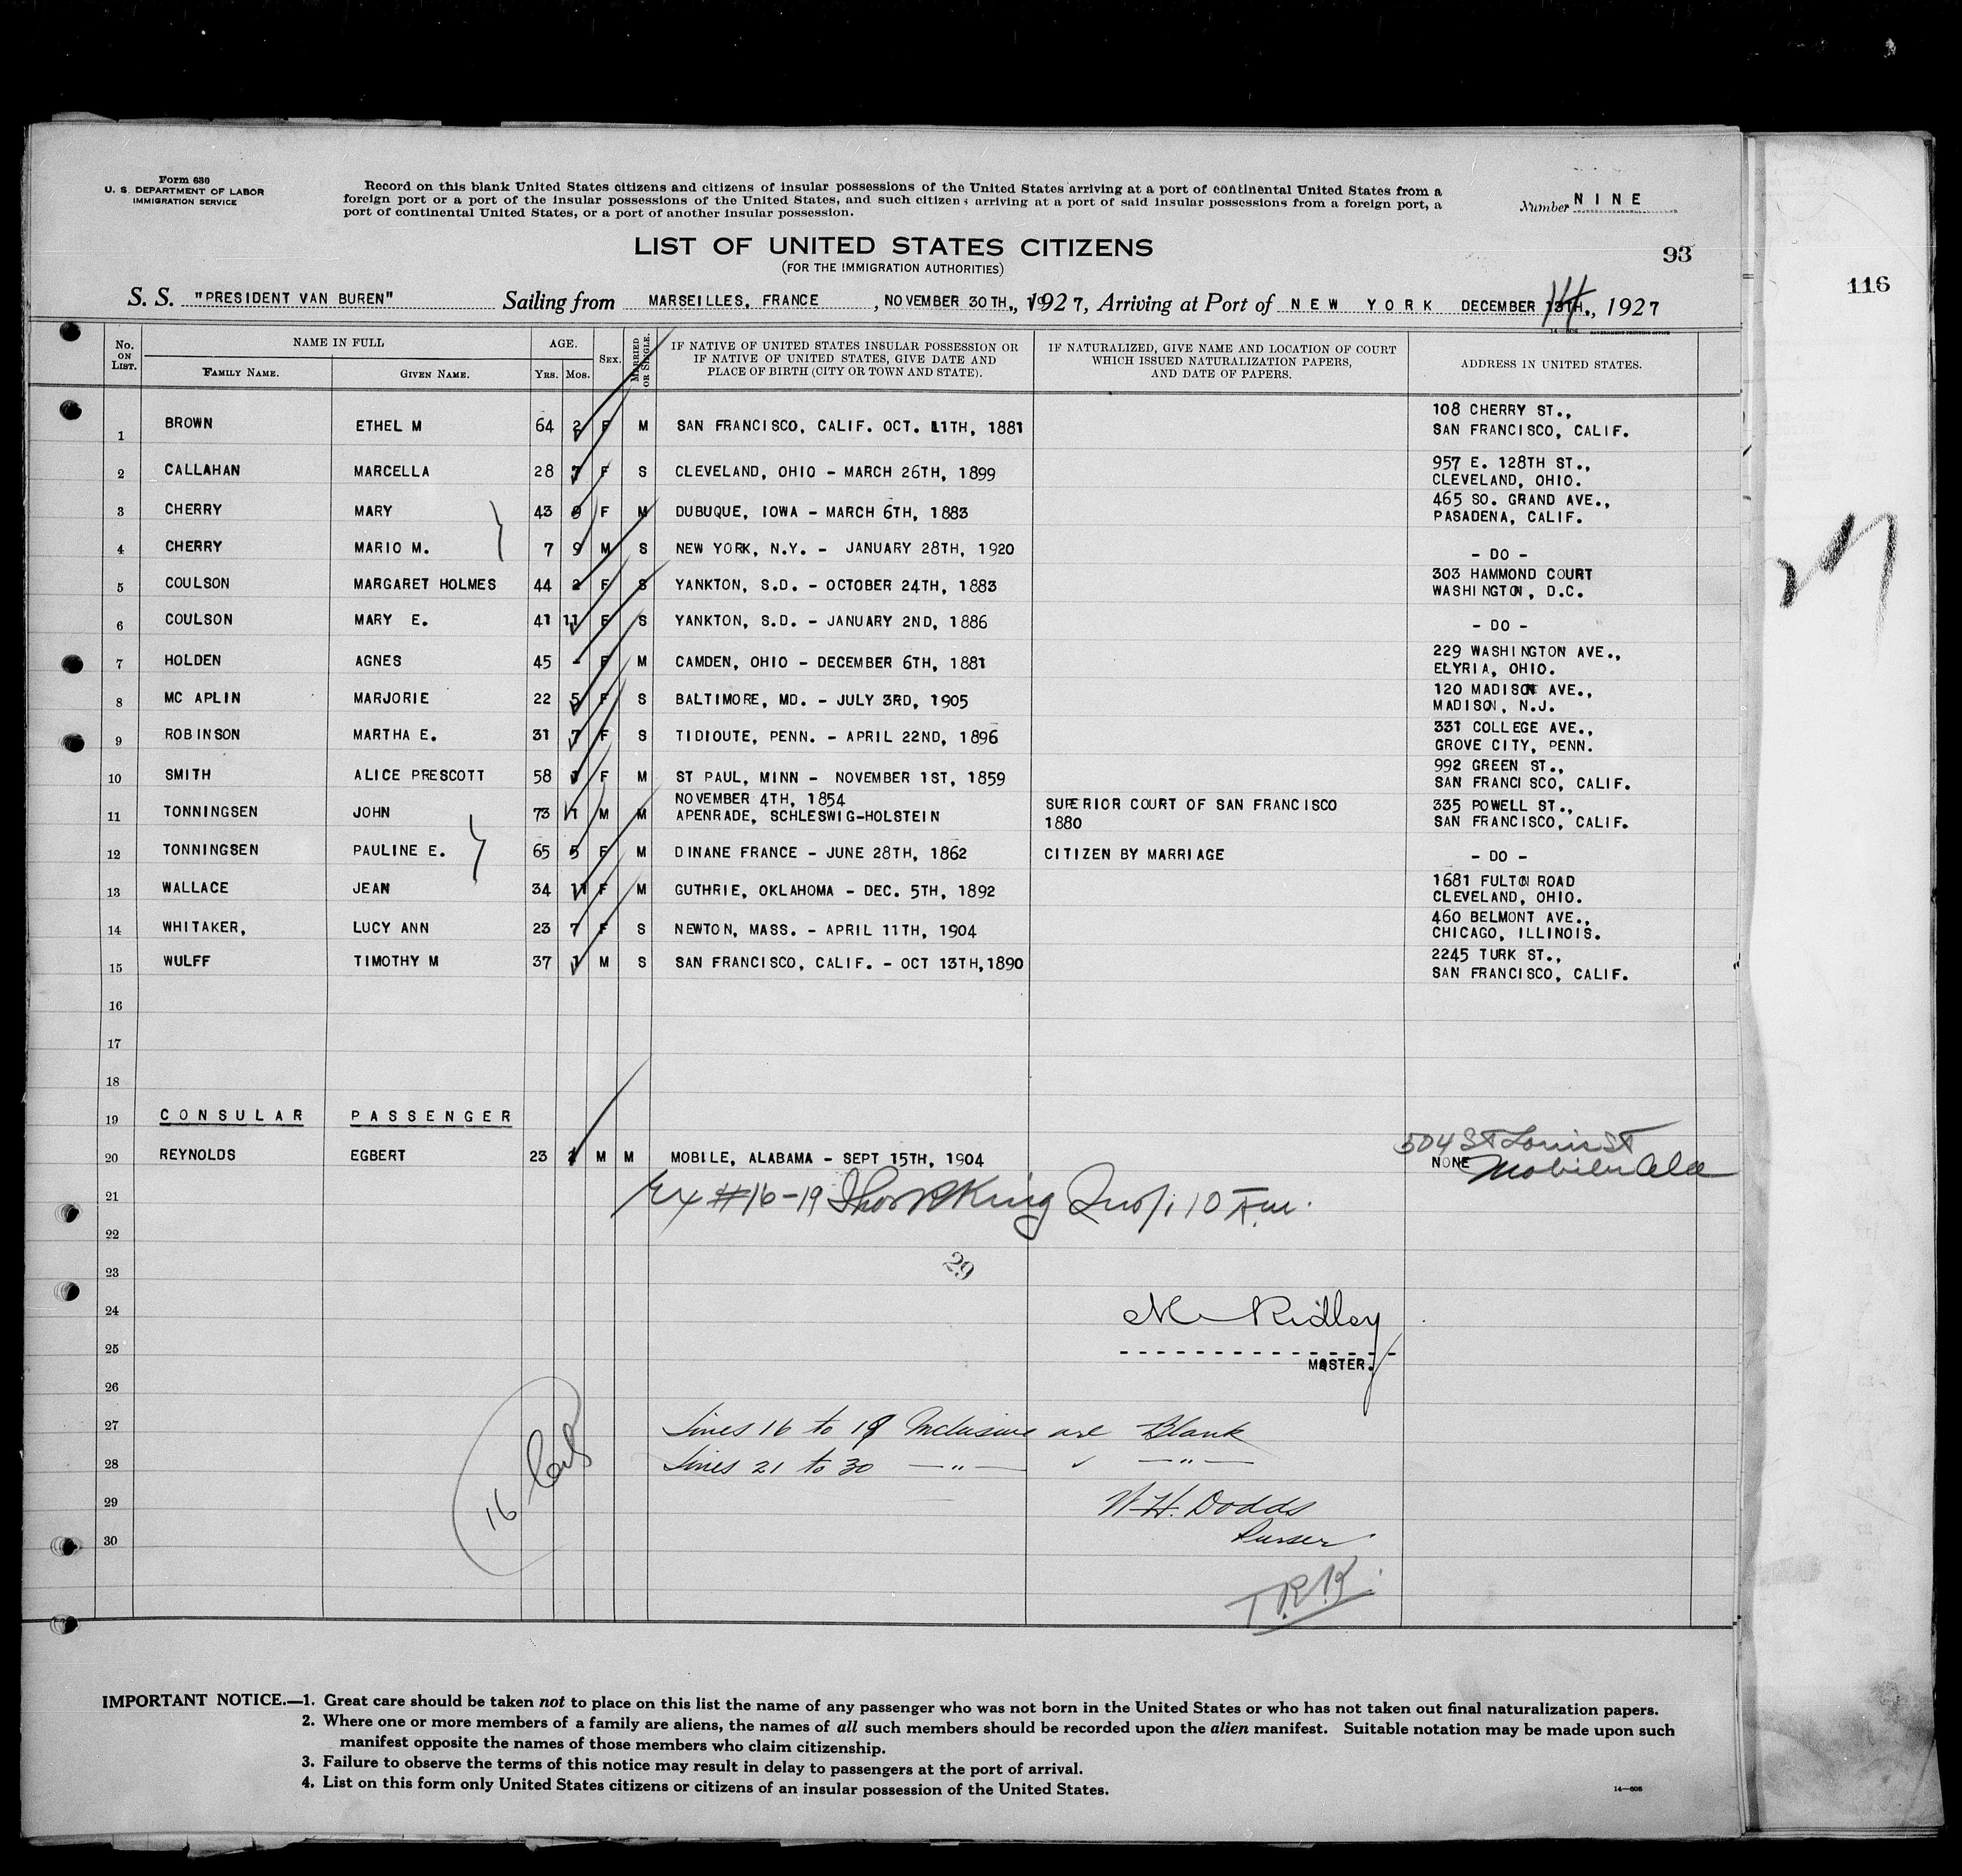 Form 630
U. S. DEPARTMENT OF LABOR
IMMIGRATION SERVICE
Record on this blank United States citizens and citizens of insular possessions of the United States arriving at a port of continental United States from a
foreign port or a port of the insular possessions of the United States, and such citizens arriving at a port of said insular possessions from a foreign port, a
port of continental United States, or a port of another insular possession.
Number NINE
LIST OF UNITED STATES CITIZENS
(FOR THE IMMIGRATION AUTHORITIES)
93
116
S. S. "PRESIDENT VAN BUREN" Sailing from MARSEILLES, FRANCE, NOVEMBER 30TH., 1927, Arriving at Port of NEW YORK DECEMBER 13TH., 1927
14
No. ON LIST. NAME IN FULL FAMILY NAME. GIVEN NAME. AGE. YRS. MOS. SEX. MARRIED OR SINGLE. IF NATIVE OF UNITED STATES INSULAR POSSESSION OR IF NATIVE OF UNITED STATES, GIVE DATE AND PLACE OF BIRTH (CITY OR TOWN AND STATE). IF NATURALIZED, GIVE NAME AND LOCATION OF COURT WHICH ISSUED NATURALIZATION PAPERS, AND DATE OF PAPERS. ADDRESS IN UNITED STATES.
1 BROWN ETHEL M 64 2 F M SAN FRANCISCO, CALIF. OCT. 11TH, 1881 108 CHERRY ST., SAN FRANCISCO, CALIF.
2 CALLAHAN MARCELLA 28 7 F S CLEVELAND, OHIO - MARCH 26TH, 1899 957 E. 128TH ST., CLEVELAND, OHIO.
3 CHERRY MARY 43 F M DUBUQUE, IOWA - MARCH 6TH, 1883 465 SO. GRAND AVE., PASADENA, CALIF.
4 CHERRY MARIO M. 7 9 M S NEW YORK, N.Y. - JANUARY 28TH, 1920 - DO -
5 COULSON MARGARET HOLMES 44 2 F S YANKTON, S.D. - OCTOBER 24TH, 1883 303 HAMMOND COURT WASHINGTON, D.C.
6 COULSON MARY E. 41 11 F S YANKTON, S.D. - JANUARY 2ND, 1886 - DO -
7 HOLDEN AGNES 45 - F M CAMDEN, OHIO - DECEMBER 6TH, 1881 229 WASHINGTON AVE., ELYRIA, OHIO.
8 MC APLIN MARJORIE 22 5 F S BALTIMORE, MD. - JULY 3RD, 1905 120 MADISON AVE., MADISON, N.J.
9 ROBINSON MARTHA E. 31 7 F S TIDIOUTE, PENN. - APRIL 22ND, 1896 331 COLLEGE AVE., GROVE CITY, PENN.
10 SMITH ALICE PRESCOTT 58 1 F M ST PAUL, MINN - NOVEMBER 1ST, 1859 992 GREEN ST., SAN FRANCISCO, CALIF.
11 TONNINGSEN JOHN 73 1 M M NOVEMBER 4TH, 1854 APENRADE, SCHLESWIG-HOLSTEIN SUPERIOR COURT OF SAN FRANCISCO 1880 335 POWELL ST., SAN FRANCISCO, CALIF.
12 TONNINGSEN PAULINE E. 65 5 F M DINANE FRANCE - JUNE 28TH, 1862 CITIZEN BY MARRIAGE - DO -
13 WALLACE JEAN 34 11 F M GUTHRIE, OKLAHOMA - DEC. 5TH, 1892 1681 FULTON ROAD CLEVELAND, OHIO.
14 WHITAKER, LUCY ANN 23 7 F S NEWTON, MASS. - APRIL 11TH, 1904 460 BELMONT AVE., CHICAGO, ILLINOIS.
15 WULFF TIMOTHY M 37 1 M S SAN FRANCISCO, CALIF. - OCT 13TH, 1890 2245 TURK ST., SAN FRANCISCO, CALIF.
16
17
18
19 CONSULAR PASSENGER
20 REYNOLDS EGBERT 23 M M MOBILE, ALABAMA - SEPT 15TH, 1904 NONE 504 St Louis St Mobile Ala
21 Ex #16-19 King
22
23 29
24 M Ridley
25 MASTER.
26
27 Lines 16 to 19 Inclusive are Blank
28 Lines 21 to 30 — " — " — " —
29 W. H. Dodds
30 Purser
16
T.R.K.
IMPORTANT NOTICE.—1. Great care should be taken not to place on this list the name of any passenger who was not born in the United States or who has not taken out final naturalization papers.
2. Where one or more members of a family are aliens, the names of all such members should be recorded upon the alien manifest. Suitable notation may be made upon such
manifest opposite the names of those members who claim citizenship.
3. Failure to observe the terms of this notice may result in delay to passengers at the port of arrival.
4. List on this form only United States citizens or citizens of an insular possession of the United States.
14—608